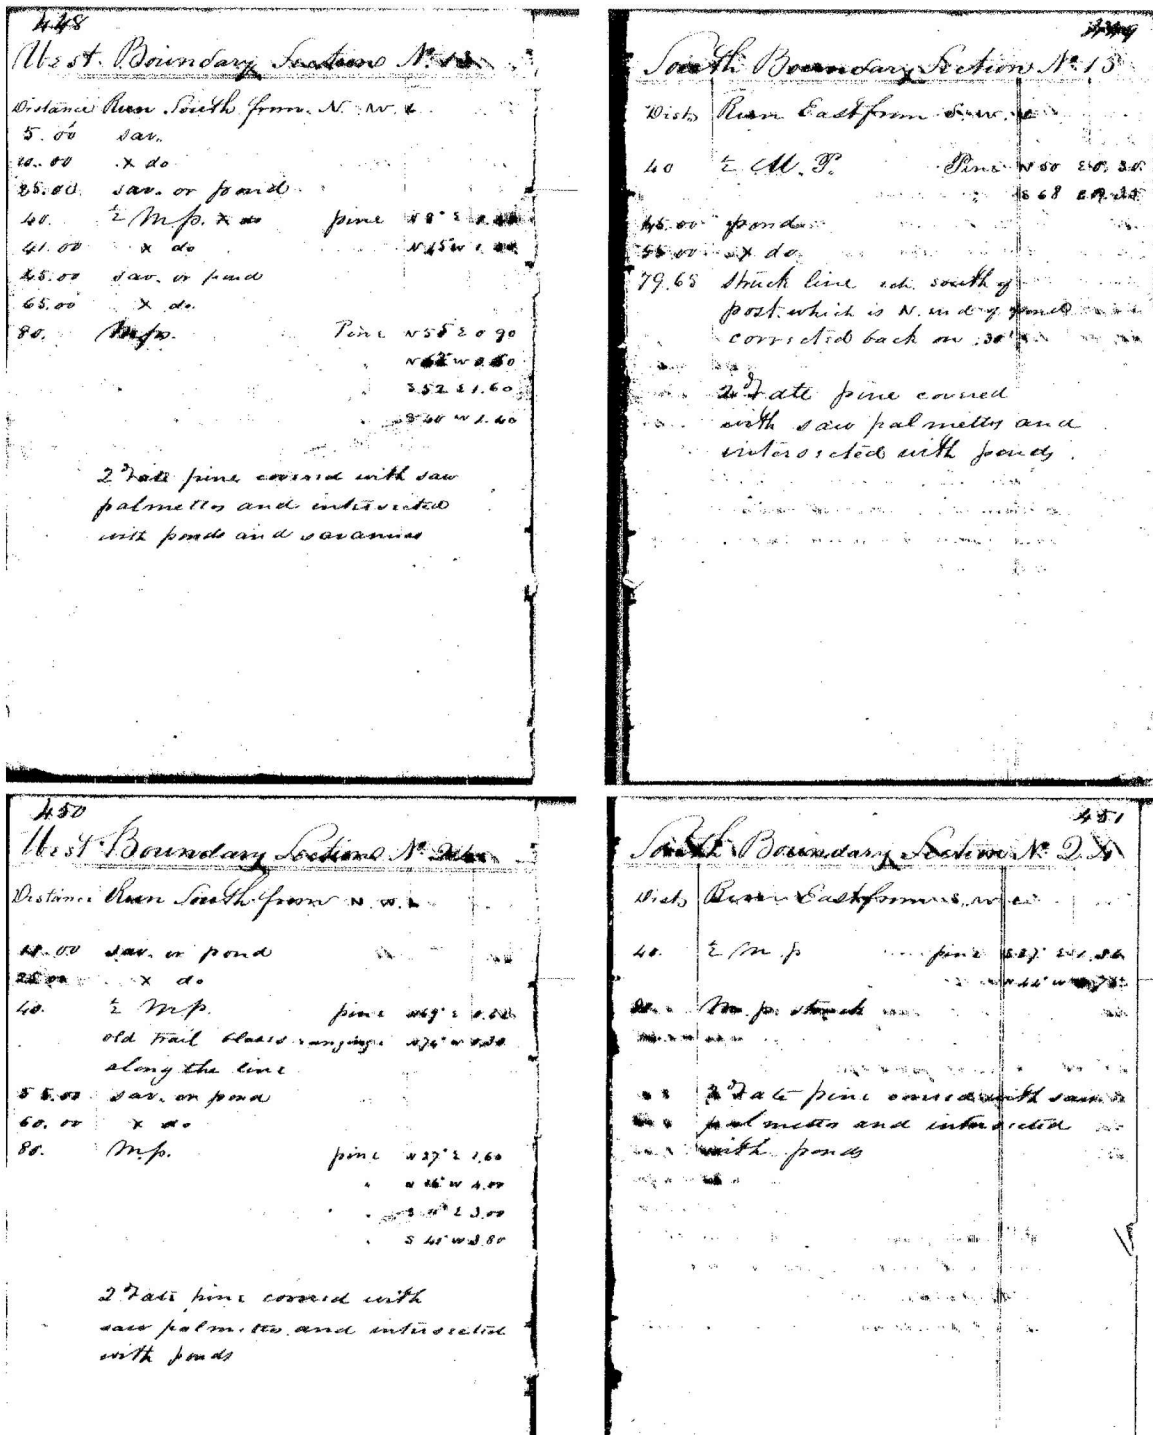 448
West Boundary Section No. 13
Distance Run South from N. W. c
5.00 sav.
10.00 x do
25.00 sav. or pond
40. ½ M p. x do pine N 8° E
41.00 x do N 45 W
45.00 sav. or pond
65.00 x do.
80. M.p. Pine N 55 E 0 90
N 62 W 0.50
S 52 E 1.60
S 40 W 1.40
2d rate pine covered with saw
palmetto and intersected
with ponds and savannas
449
South Boundary Section No. 13
Dist. Run East from S. W. c
40 ½ M. P. Pine N 50 E 0. 30.
S 68 E
45.00 pond
55.00 x do.
79.65 struck line south of
post which is N. end of pond
corrected back on 30
2d rate pine covered
with saw palmetto and
intersected with ponds.
450
West Boundary Section No.
Distance Run South from N. W. c
sav. or pond
x do
40. ½ M.p. pine N 69° E
old trail blazes ranging N 76° W
along the line
55.00 sav. or pond
60.00 x do
80. M.p. pine N 27° E 1.60
N 26° W 4.00
E 3.00
S 45° W 3.80
2d rate pine covered with
saw palmetto and intersected
with ponds
451
South Boundary Section No. 24
Dist. Run East from S. W. c
40. ½ M p pine S 27° E
M. p. struck
2d rate pine covered with saw
palmetto and intersected
with ponds